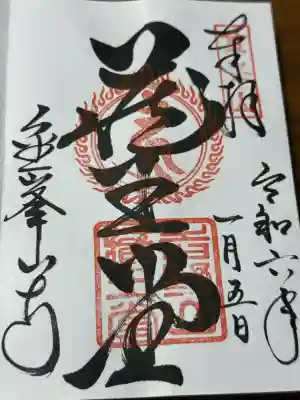 奉拝
令和六年
一月五日
蔵王堂
金峯山寺